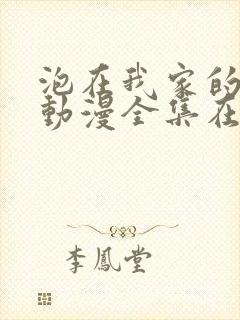 泡在我家的
動漫全集在
李鳳堂